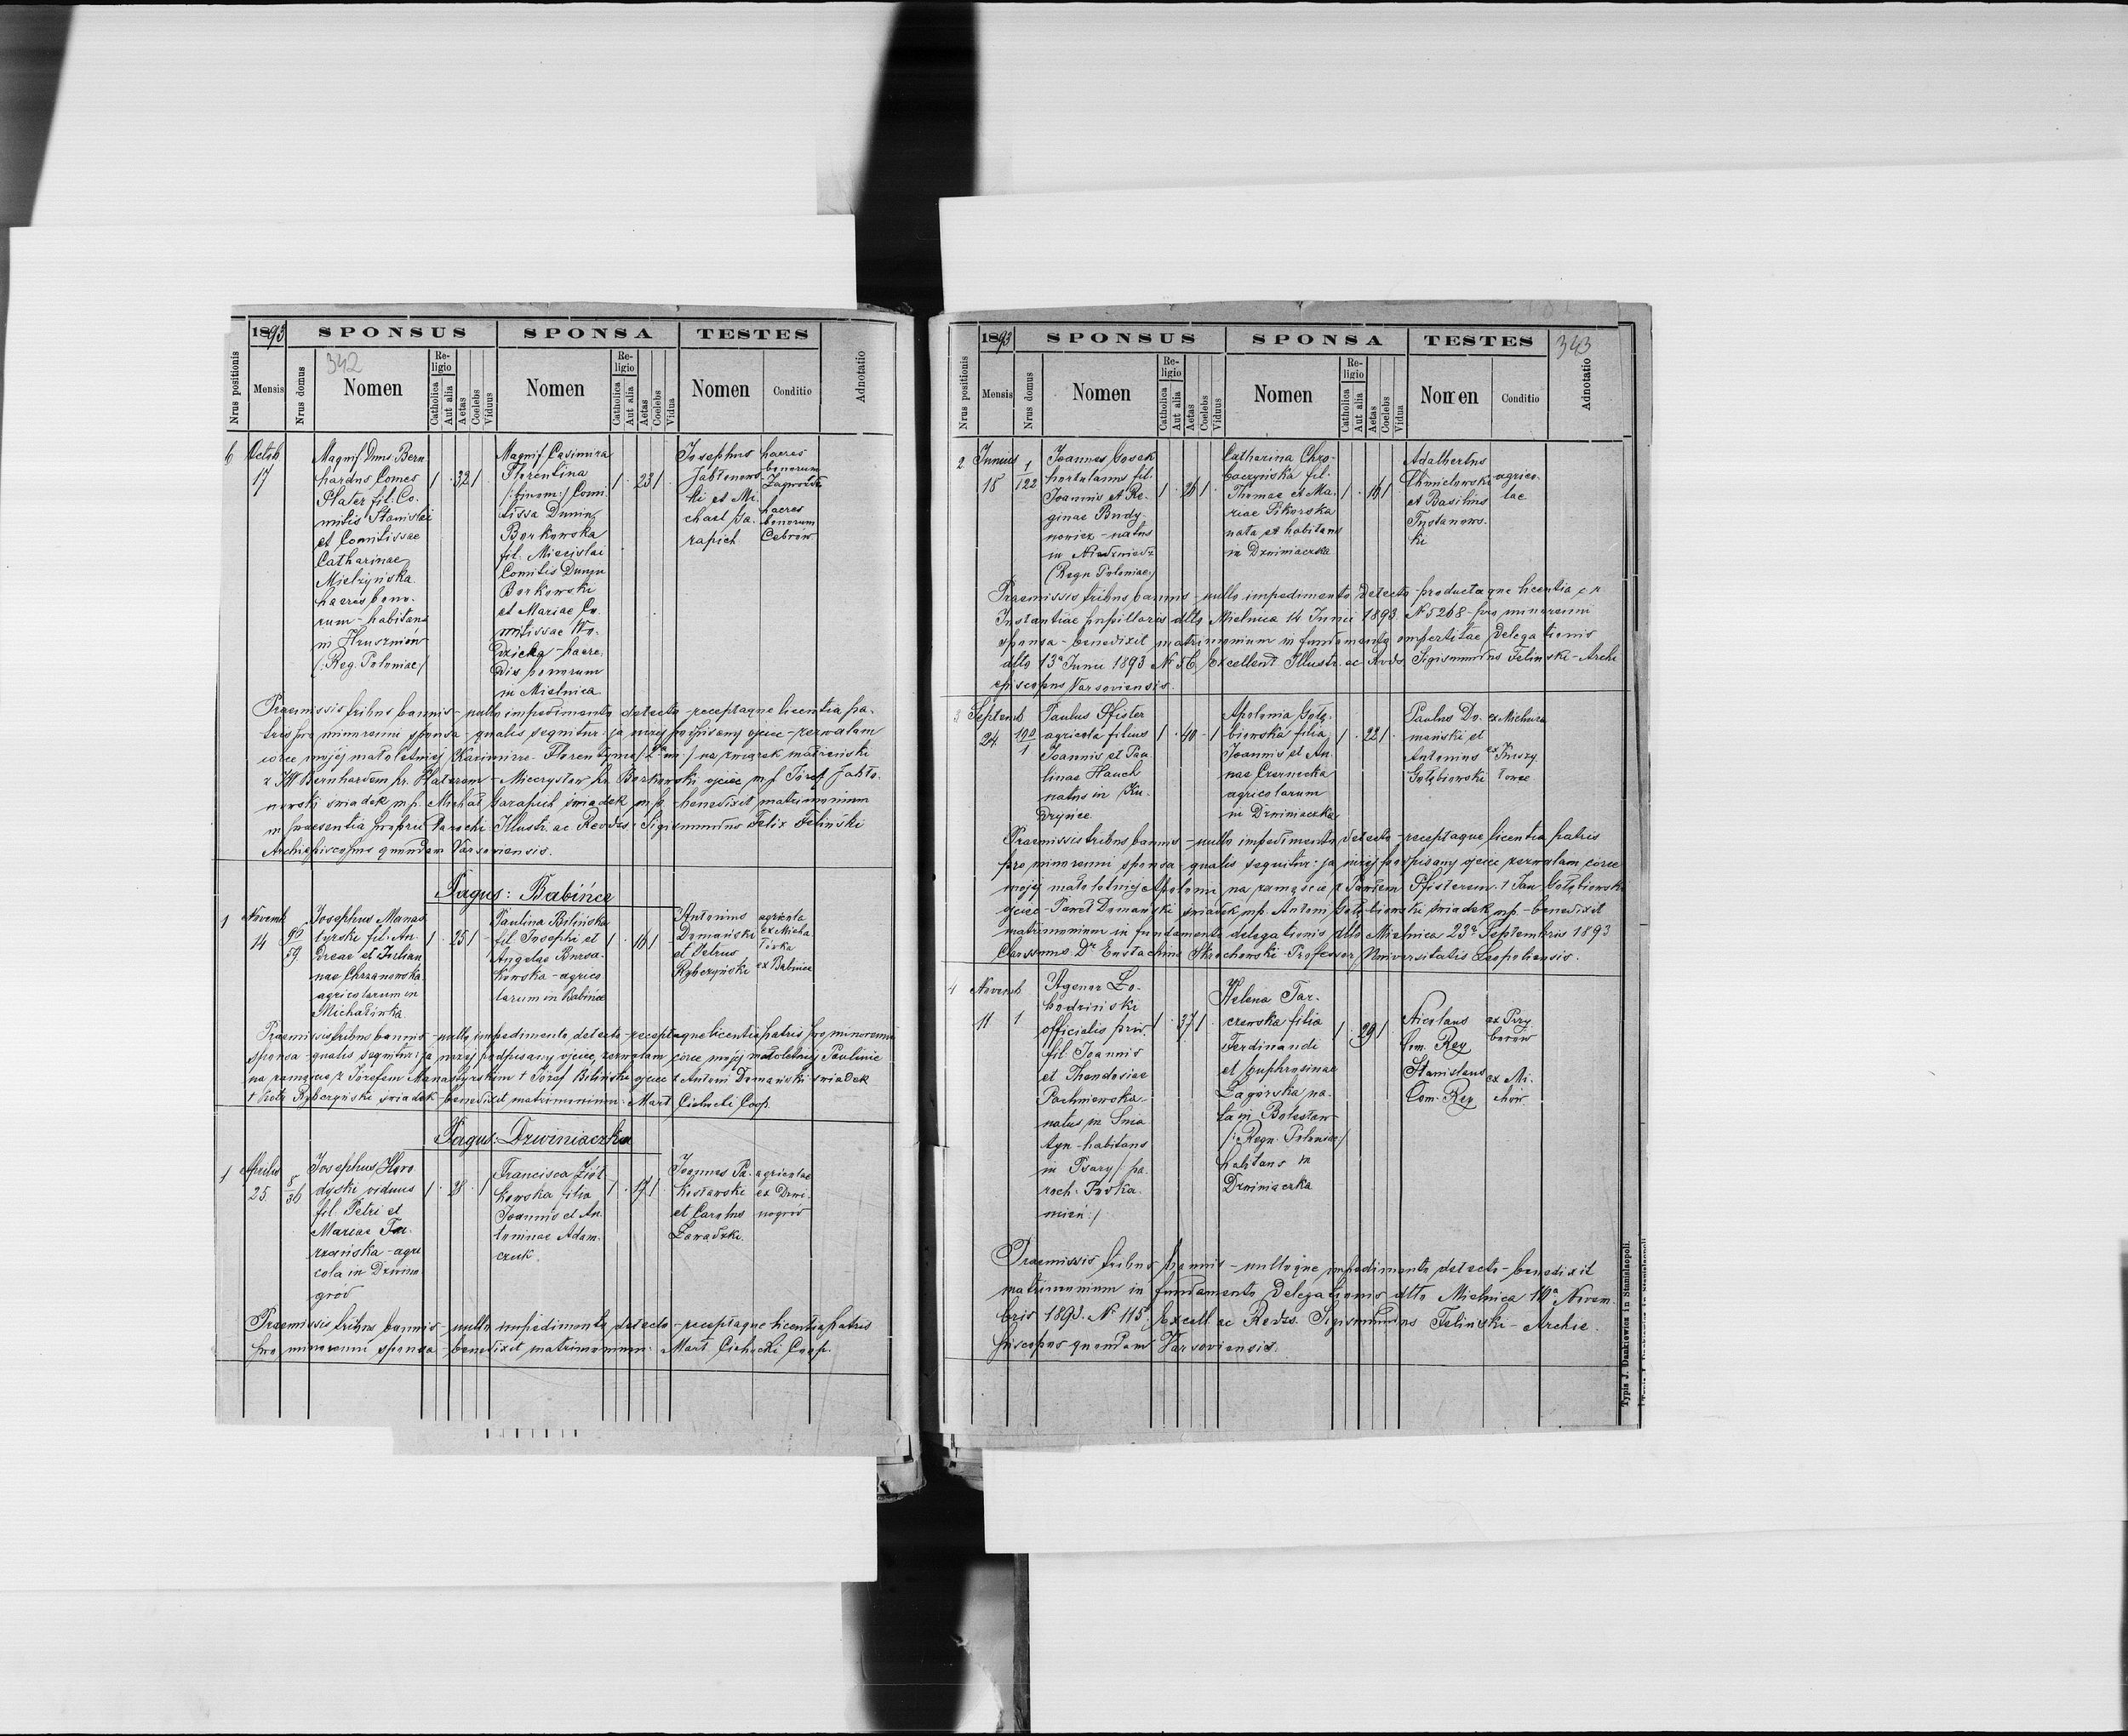 1893 SPONSUS SPONSA TESTES
Nrus positionis Mensis Nrus domus 342 Nomen Religio Catholica Aut alia Aetas Coelebs Viduus Nomen Religio Catholica Aut alia Aetas Coelebs Vidua Nomen Conditio Adnotatio
6 Octob 17
Magnif. Dnus Bern
hardus Comes
Plater fil. Co-
mitis Stanislai
et Comitissae
Catharinae
Mielżyńska
haeres bono-
rum - habitans
in Hruszniów
(: Reg. Poloniae :)
1 . 32 1
Magnif. Casimira
Florentina
/: binom :/ Comi-
tissa Dunin
Borkowska
fil. Miecislai
Comitis Dunin
Borkowski
et Mariae Co-
mitissae Wo-
dzicka - haere-
dis bonorum
in Mielnica
1 . 23 1
Josephus
Jabłonows-
ki et Mi-
chael Ga-
rapich
haeres
bonorum
Zagwóźdź
haeres
bonorum
Cebrów
Praemissis tribus bannis - nullo impedimento detecto - receptaque licentia pa-
tris pro minorenni sponsa - qualis sequitur: ja niżej podpisany ojciec - zezwalam
córce mojej małoletniej Kazimirze Florentynie /: 2 im :/ na związek małżeński
z JW Bernhardem hr. Platerem - Mieczysław hr. Borkowski ojciec mp Józef Jabło-
nowski świadek mp. Michał Garapich świadek mp. - benedixit matrimonium
in praesentia proprii Parochi Illustr. ac Revdss. Sigismundus Felix Feliński
Archiepiscopus quondam Varsoviensis.
Pagus: Babińce
1 Novemb 14 90 59
Josephus Manas
tyrski fil. An-
dreae et Julian
nae Chrzanowska
agricolarum in
Michałówka
1 . 25 1 -
Paulina Bilińska
fil. Josephi et
Angelae Bursa-
kowska - agrico
larum in Babińce
1 . 16 1
Antonius
Domański
et Petrus
Rybczyński
agricola
ex Micha
łówka
ex Babince
Praemissis tribus bannis - nullo impedimento detecto - receptaque licentia patris pro minorenni
sponsa - qualis sequitur: ja niżej podpisany ojciec zezwalam córce mojej małoletniej Paulinie
na zamęście z Józefem Manastyrskim † Józef Biliński ojciec † Antoni Domański świadek
† Piotr Rybczyński świadek - benedixit matrimonium: Mart. Cichocki Coop.
Pagus: Dzwiniaczka
1 Aprilis 25 8 36
Josephus Horo
dyski viduus
fil. Petri et
Mariae
agri
cola in Dzwino
gród
1 . 28 . 1
Francisca Ziół
kowska filia
Joannis et An
toninae Adam-
czuk
1 . 17 1
Joannes Pa-
kosławski
et Carolus
Zawadzki
agricolae
ex Dzwi-
nogród
Praemissis tribus bannis - nullo impedimento detecto - receptaque licentia patris
pro minorenni sponsa - benedixit matrimonium: Mart. Cichocki Coop.
1893 SPONSUS SPONSA TESTES 343
Nrus positionis Mensis Nrus domus Nomen Religio Catholica Aut alia Aetas Coelebs Viduus Nomen Religio Catholica Aut alia Aetas Coelebs Vidua Nomen Conditio Adnotatio
2 Junius 18 1 122
Joannes Gosek
hortulanus fil.
Joannis et Re-
ginae Budy-
nowicz - natus
in Niedzwiedz
(Regn Poloniae:)
1 . 26 1 .
Catharina Chro-
baczyńska fil.
Thomae et Ma-
riae Sikorska
nata et habitans
in Dzwiniaczka
1 . 16 1
Adalbertus
Chmielowski
et Basilius
Tustanows-
ki
agrico-
lae
Praemissis tribus bannis - nullo impedimento detecto - productaque licentia c. r.
Instantiae pupillaris ddto Mielnica 14 Junii 1893. № 5268 - pro minorenni
sponsa - benedixit matrimonium in fundamento impertitae Delegationis
ddto 13a Junii 1893 № 56, Excellent. Illustr. ac Rvds. Sigismundus Felinski - Archi
episcopus Varsoviensis.
3 Septemb 24 100 1
Paulus Pfister
agricola filius
Joannis et Pau
linae Hauch
natus in Ku-
dryńce
1 . 40 - 1
Apolonia Gołę-
biowska filia
Joannis et An-
nae Czernecka
agricolarum
in Dzwiniaczka
1 . 22 1
Paulus Do-
mański et
Antonius
Gołębiowski
ex Mielnica
ex
towce
Praemissis tribus bannis - nullo impedimento detecto - receptaque licentia patris
pro minorenni sponsa - qualis sequitur: ja niżej podpisany ojciec zezwalam córce
mojej małoletniej Apolonii na zamęście z Pawłem Pfisterem. † Jan Gołębiowski
ojciec - Paweł Domański świadek mp. Antoni Gołębiowski świadek mp. - benedixit
matrimonium in fundamento delegationis ddto Mielnica 23a Septembris 1893
Clarssimus Dr Eustachius Skrochowski - Professor Universitatis Leopoliensis.
4 Novemb 11 1
Agenor Ło-
bodziński
officialis priv.
fil. Joannis
et Theodosiae
Pachniewska
natus in Snia
tyn - habitans
in Psary / pa-
roch.
1 . 37 1 .
Helena Tar-
czewska filia
Ferdinandi
et Euphrosinae
Zagórska na-
ta in Bolesław
/: Regn. Poloniae :/
habitans in
Dzwiniaczka
1 . 29 1
Nicolaus
Com. Rey
Stanislaus
Com. Rey
ex Przy
borów
ex Mi-
chów
Praemissis tribus bannis - nulloque impedimento detecto - benedixit
matrimonium in fundamento Delegationis ddto Mielnica 10a Novem-
bris 1893. № 115. Excell. ac Revdss. Sigismundus Felinski - Archie-
piscopus quondam Varsoviensis.
Typis J. Dankiewicz in Stanislaopoli.